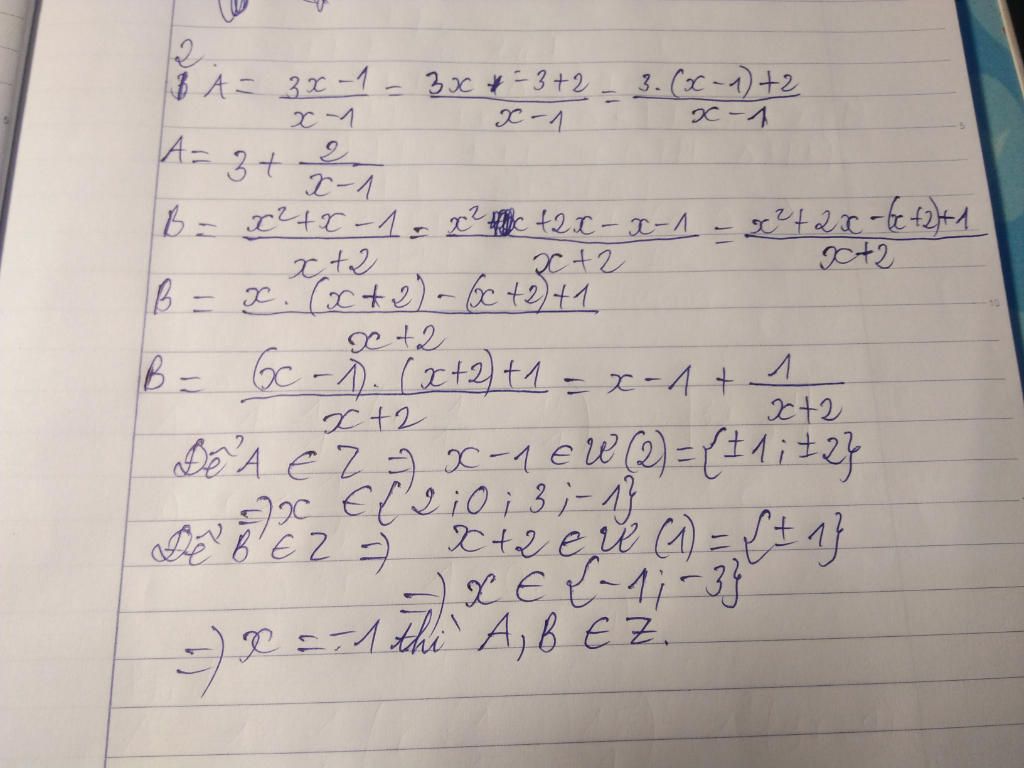 2.
A = (3x - 1)/(x - 1) = (3x - 3 + 2)/(x - 1) = (3.(x - 1) + 2)/(x - 1)
A = 3 + 2/(x - 1)
B = (x² + x - 1)/(x + 2) = (x² + 2x - x - 1)/(x + 2) = (x² + 2x - (x + 2) + 1)/(x + 2)
B = (x.(x + 2) - (x + 2) + 1)/(x + 2)
B = ((x - 1).(x + 2) + 1)/(x + 2) = x - 1 + 1/(x + 2)
Để A ∈ Z => x - 1 ∈ Ư(2) = {±1; ±2}
=> x ∈ {2; 0; 3; -1}
Để B ∈ Z => x + 2 ∈ Ư(1) = {±1}
=> x ∈ {-1; -3}
=> x = -1 thì A, B ∈ Z.